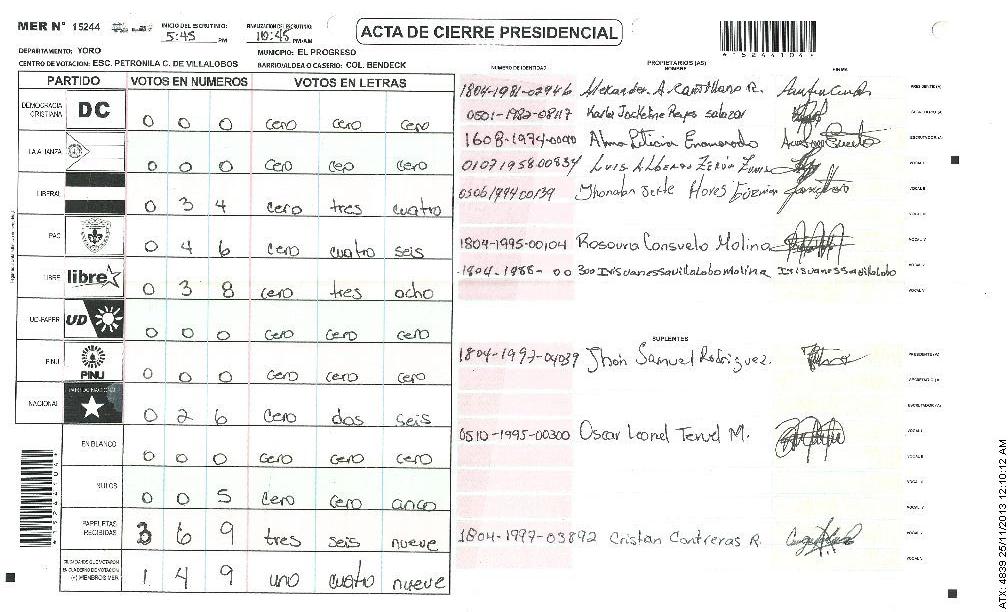 MER N° 15244
INICIO DEL ESCRUTINIO: 5:45 PM
FINALIZACION DEL ESCRUTINIO: 10:45 PM/AM
ACTA DE CIERRE PRESIDENCIAL
15244104
DEPARTAMENTO: YORO
MUNICIPIO: EL PROGRESO
CENTRO DE VOTACION: ESC. PETRONILA C. DE VILLALOBOS
BARRIO/ALDEA O CASERIO: COL. BENDECK
PARTIDO VOTOS EN NUMEROS VOTOS EN LETRAS
DEMOCRACIA CRISTIANA DC 0 0 0 cero cero cero
LA ALIANZA 0 0 0 cero cero cero
LIBERAL 0 3 4 cero tres cuatro
PAC 0 4 6 cero cuatro seis
LIBRE libre 0 3 8 cero tres ocho
UD-FAPER UD 0 0 0 cero cero cero
PINU PINU 0 0 0 cero cero cero
NACIONAL PARTIDO NACIONAL 0 2 6 cero dos seis
EN BLANCO 0 0 0 cero cero cero
NULOS 0 0 5 cero cero cinco
PAPELETAS RECIBIDAS 3 6 9 tres seis nueve
CIUDADANOS QUE VOTARON EN CUADERNO DE VOTACION (+) MIEMBROS MER 1 4 9 uno cuatro nueve
NUMERO DE IDENTIDAD PROPIETARIOS (AS) NOMBRE FIRMA
1804-1981-02946 Alexander A. Cantillano R. PRESIDENTE(A)
0501-1982-08117 Karla Jackeline Reyes salazar
1608-1974-00 Alma Leticia Enamorado ESCRUTADOR(A)
0107195800834 Luis Alberto Zerón VOCAL I
0506199400139 Jhonatan Flores VOCAL II
VOCAL III
1804-1995-00104 Rosaura Consuelo Molina VOCAL IV
1804-1988-00300 Irisvanessavillalobomolina Irisvanessavillalobo VOCAL V
SUPLENTES
1804-1997-04039 Jhon Samuel Rodriguez. PRESIDENTE(A)
SECRETARIO(A)
ESCRUTADOR(A)
0510-1995-00300 Oscar Leonel M. VOCAL I
VOCAL II
VOCAL III
VOCAL IV
1804-1997-03892 Cristian Contreras R. VOCAL V
15244104
ATX: 4839 25/11/2013 12:10:12 AM